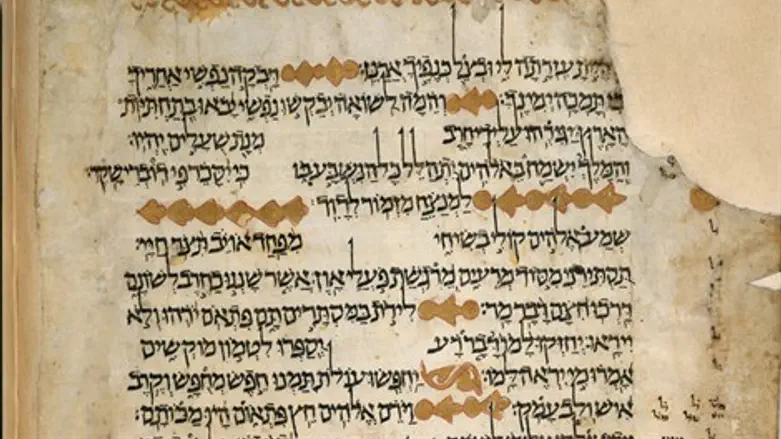 היית עזרתה לי ובצל כנפיך ארנן: דבקה נפשי אחריך
בי תמכה ימינך: והמה לשואה יבקשו נפשי יבאו בתחתיות
הארץ: יגירהו על ידי חרב מנת שעלים יהיו:
והמלך ישמח באלהים יתהלל כל הנשבע בו כי יסכר פי דוברי שקר:
למנצח מזמור לדוד:
שמע אלהים קולי בשיחי מפחד אויב תצר חיי:
תסתירני מסוד מרעים מרגשת פעלי און: אשר שננו כחרב לשונם
דרכו חצם דבר מר: לירת במסתרים תם פתאם ירהו ולא
ייראו: יחזקו למו דבר רע יספרו לטמון מוקשים
אמרו מי יראה למו: יחפשו עולת תמנו חפש מחפש וקרב
איש ולב עמק: וירם אלהים חץ פתאום היו מכותם: